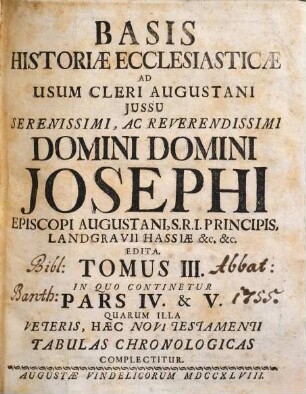 BASIS
HISTORIÆ ECCLESIASTICÆ
AD
USUM CLERI AUGUSTANI
JUSSU
SERENISSIMI, AC REVERENDISSIMI
DOMINI DOMINI
JOSEPHI
EPISCOPI AUGUSTANI, S.R.I. PRINCIPIS,
LANDGRAVII HASSIÆ &c, &c.
EDITA.
Bibl: TOMUS III. Abbat:
IN QUO CONTINETUR
Banth: PARS IV. & V. 1755.
QUARUM ILLA
VETERIS, HÆC NOVI TESTAMENTI
TABULAS CHRONOLOGICAS
COMPLECTITUR.
AUGUSTÆ VINDELICORUM MDCCXLVIII.